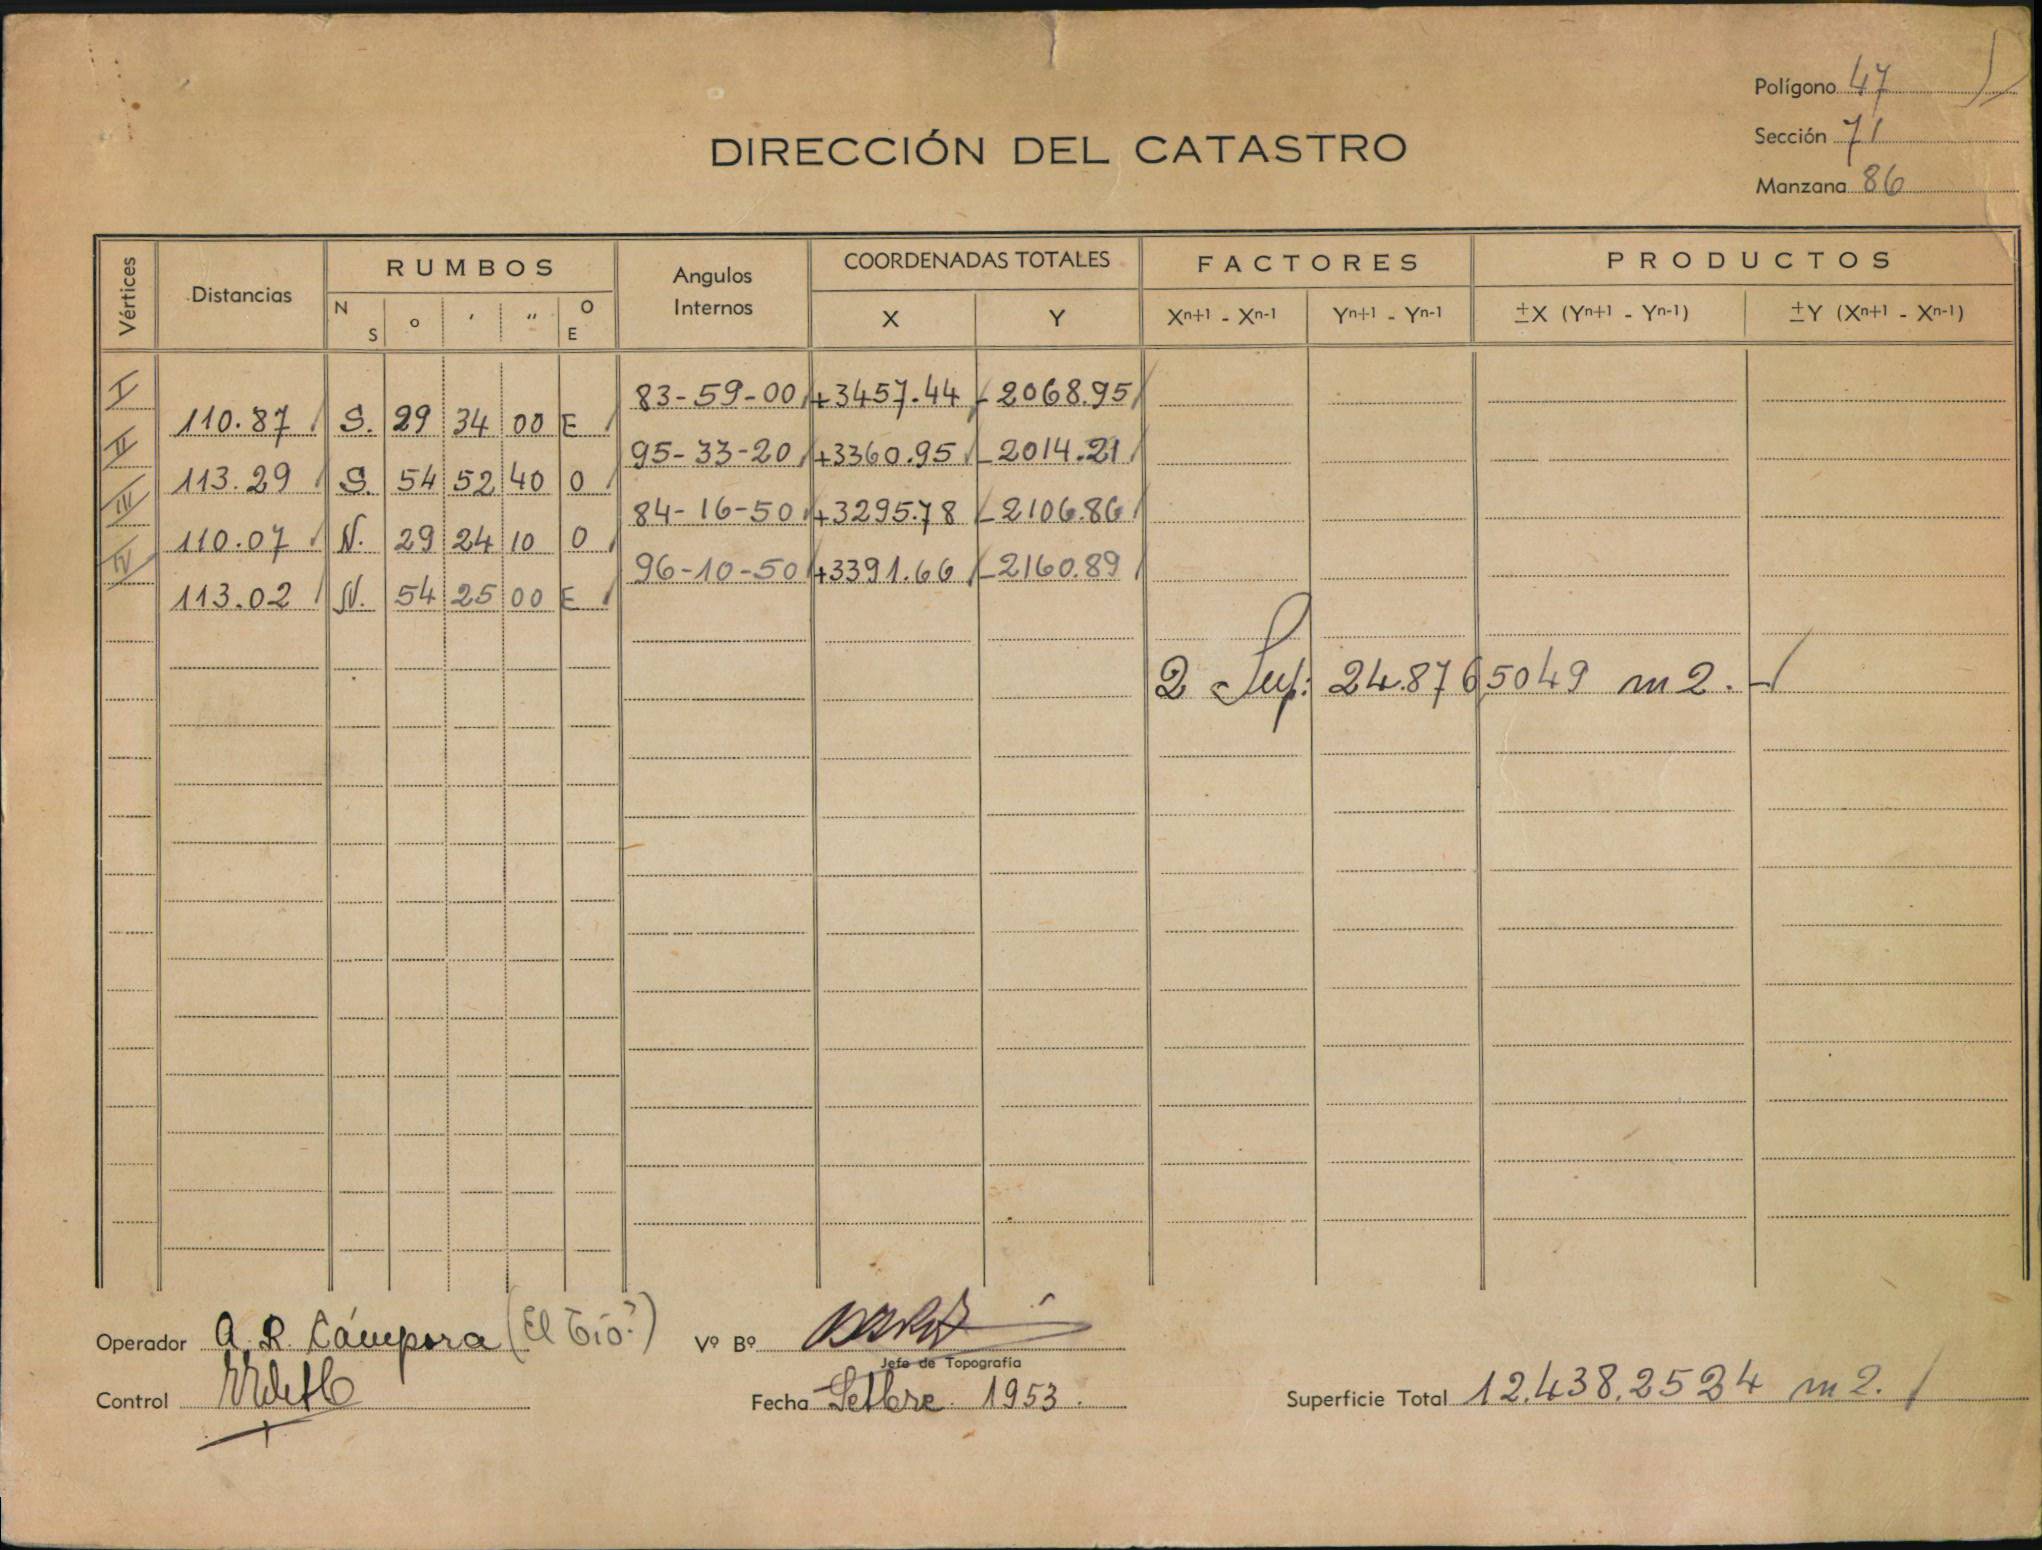 Polígono 47
Sección 71
Manzana 86
DIRECCIÓN DEL CATASTRO
Vértices Distancias RUMBOS Angulos Internos COORDENADAS TOTALES FACTORES PRODUCTOS
N S o ′ ″ O E X Y Xⁿ⁺¹ - Xⁿ⁻¹ Yⁿ⁺¹ - Yⁿ⁻¹ ±X (Yⁿ⁺¹ - Yⁿ⁻¹) ±Y (Xⁿ⁺¹ - Xⁿ⁻¹)
I 83-59-00 +3457.44 -2068.95
110.87 S. 29 34 00 E
II 95-33-20 +3360.95 -2014.21
113.29 S. 54 52 40 O
III 84-16-50 +3295.78 -2106.86
110.07 N. 29 24 10 O
IV 96-10-50 +3391.66 -2160.89
113.02 N. 54 25 00 E
2 Sup: 24.876,5049 m2.-
Operador A. R. Cámpora (El Tío?) Vº Bº
Jefe de Topografía
Control Fecha Setbre. 1953. Superficie Total 12.438.2524 m2.